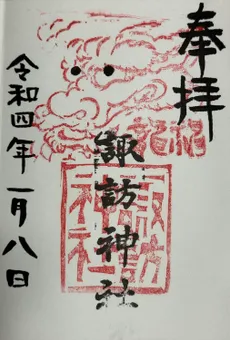 奉拝
諏訪神社
諏訪神社
令和四年一月八日